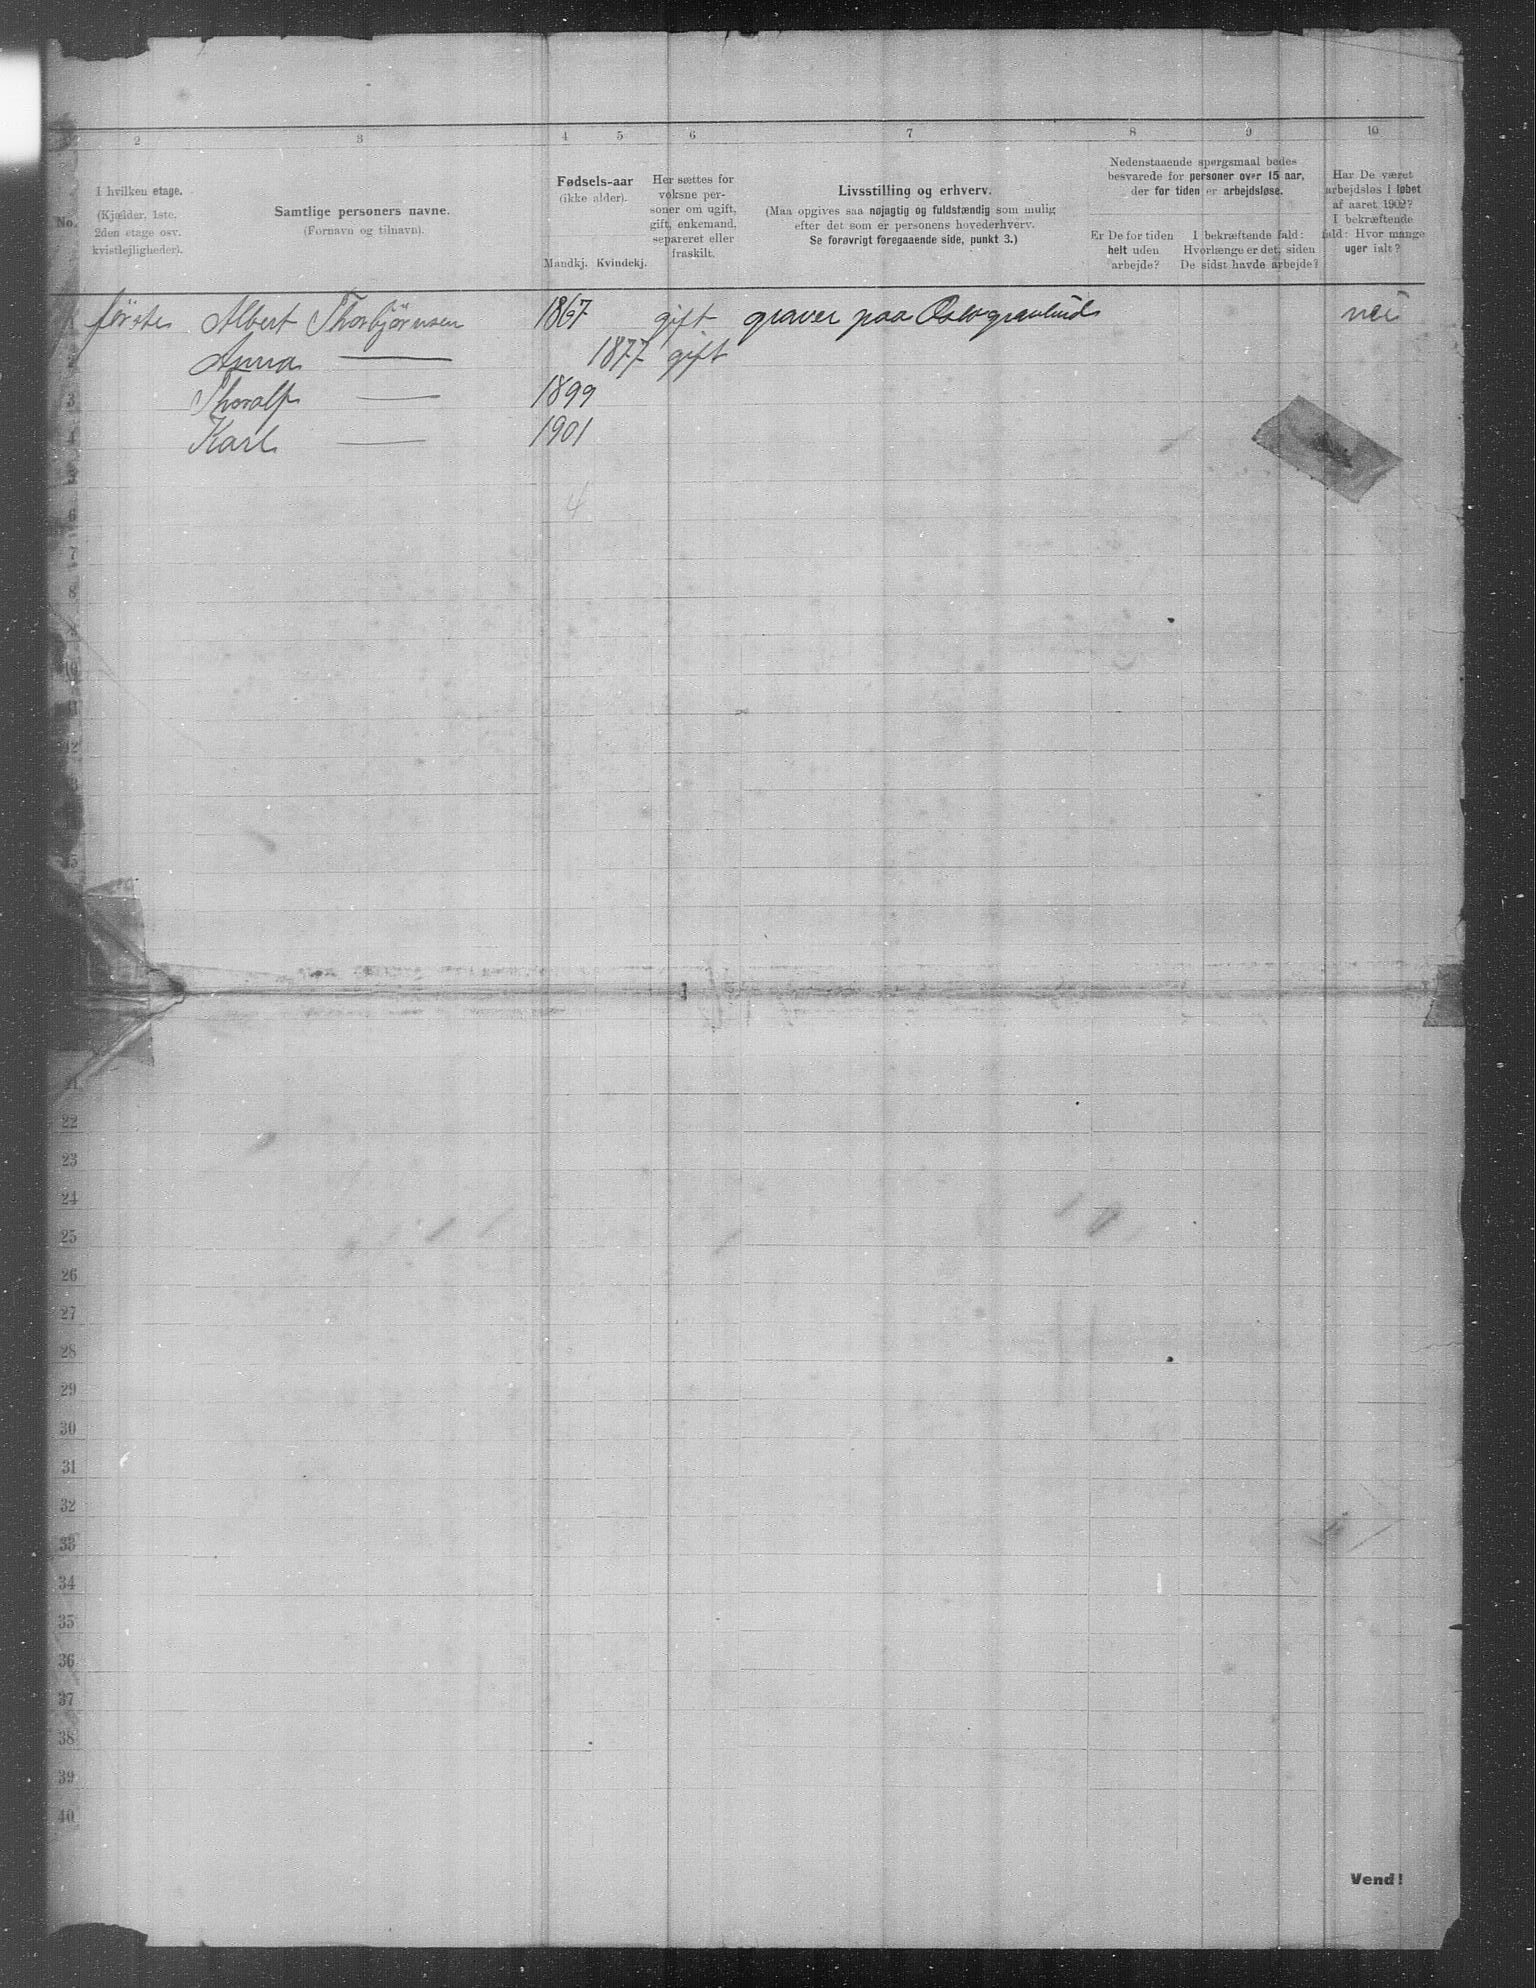 2 3 4 5 6 7 8 9 10
No.
I hvilken etage.
(Kjælder, 1ste,
2den etage osv.
kvistlejligheder).
Samtlige personers navne.
(Fornavn og tilnavn).
Fødsels-aar
(ikke alder).
Mandkj. Kvindekj.
Her sættes for
voksne per-
soner om ugift,
gift, enkemand,
separeret eller
fraskilt.
Livsstilling og erhverv.
(Maa opgives saa nøjagtig og fuldstændig som mulig
efter det som er personens hovederhverv.
Se forøvrigt foregaaende side, punkt 3.)
Nedenstaaende spørgsmaal bedes
besvarede for personer over 15 aar,
der for tiden er arbejdsløse.
Er De for tiden
helt uden
arbejde?
I bekræftende fald:
Hvorlænge er det, siden
De sidst havde arbejde?
Har De været
arbejdsløs i løbet
af aaret 1902?
I bekræftende
fald: Hvor mange
uger ialt?
förste Albert Thorbjörnsen 1867 gift graver paa Oslo gravlund nei
Anna — 1877 gift
3 Thoralf — 1899
4 Karl — 1901
5
4
6
7
8
9
10
11
12
15
21
22
23
24
25
26
27
28
29
30
31
32
33
34
35
36
37
38
39
40
Vend!